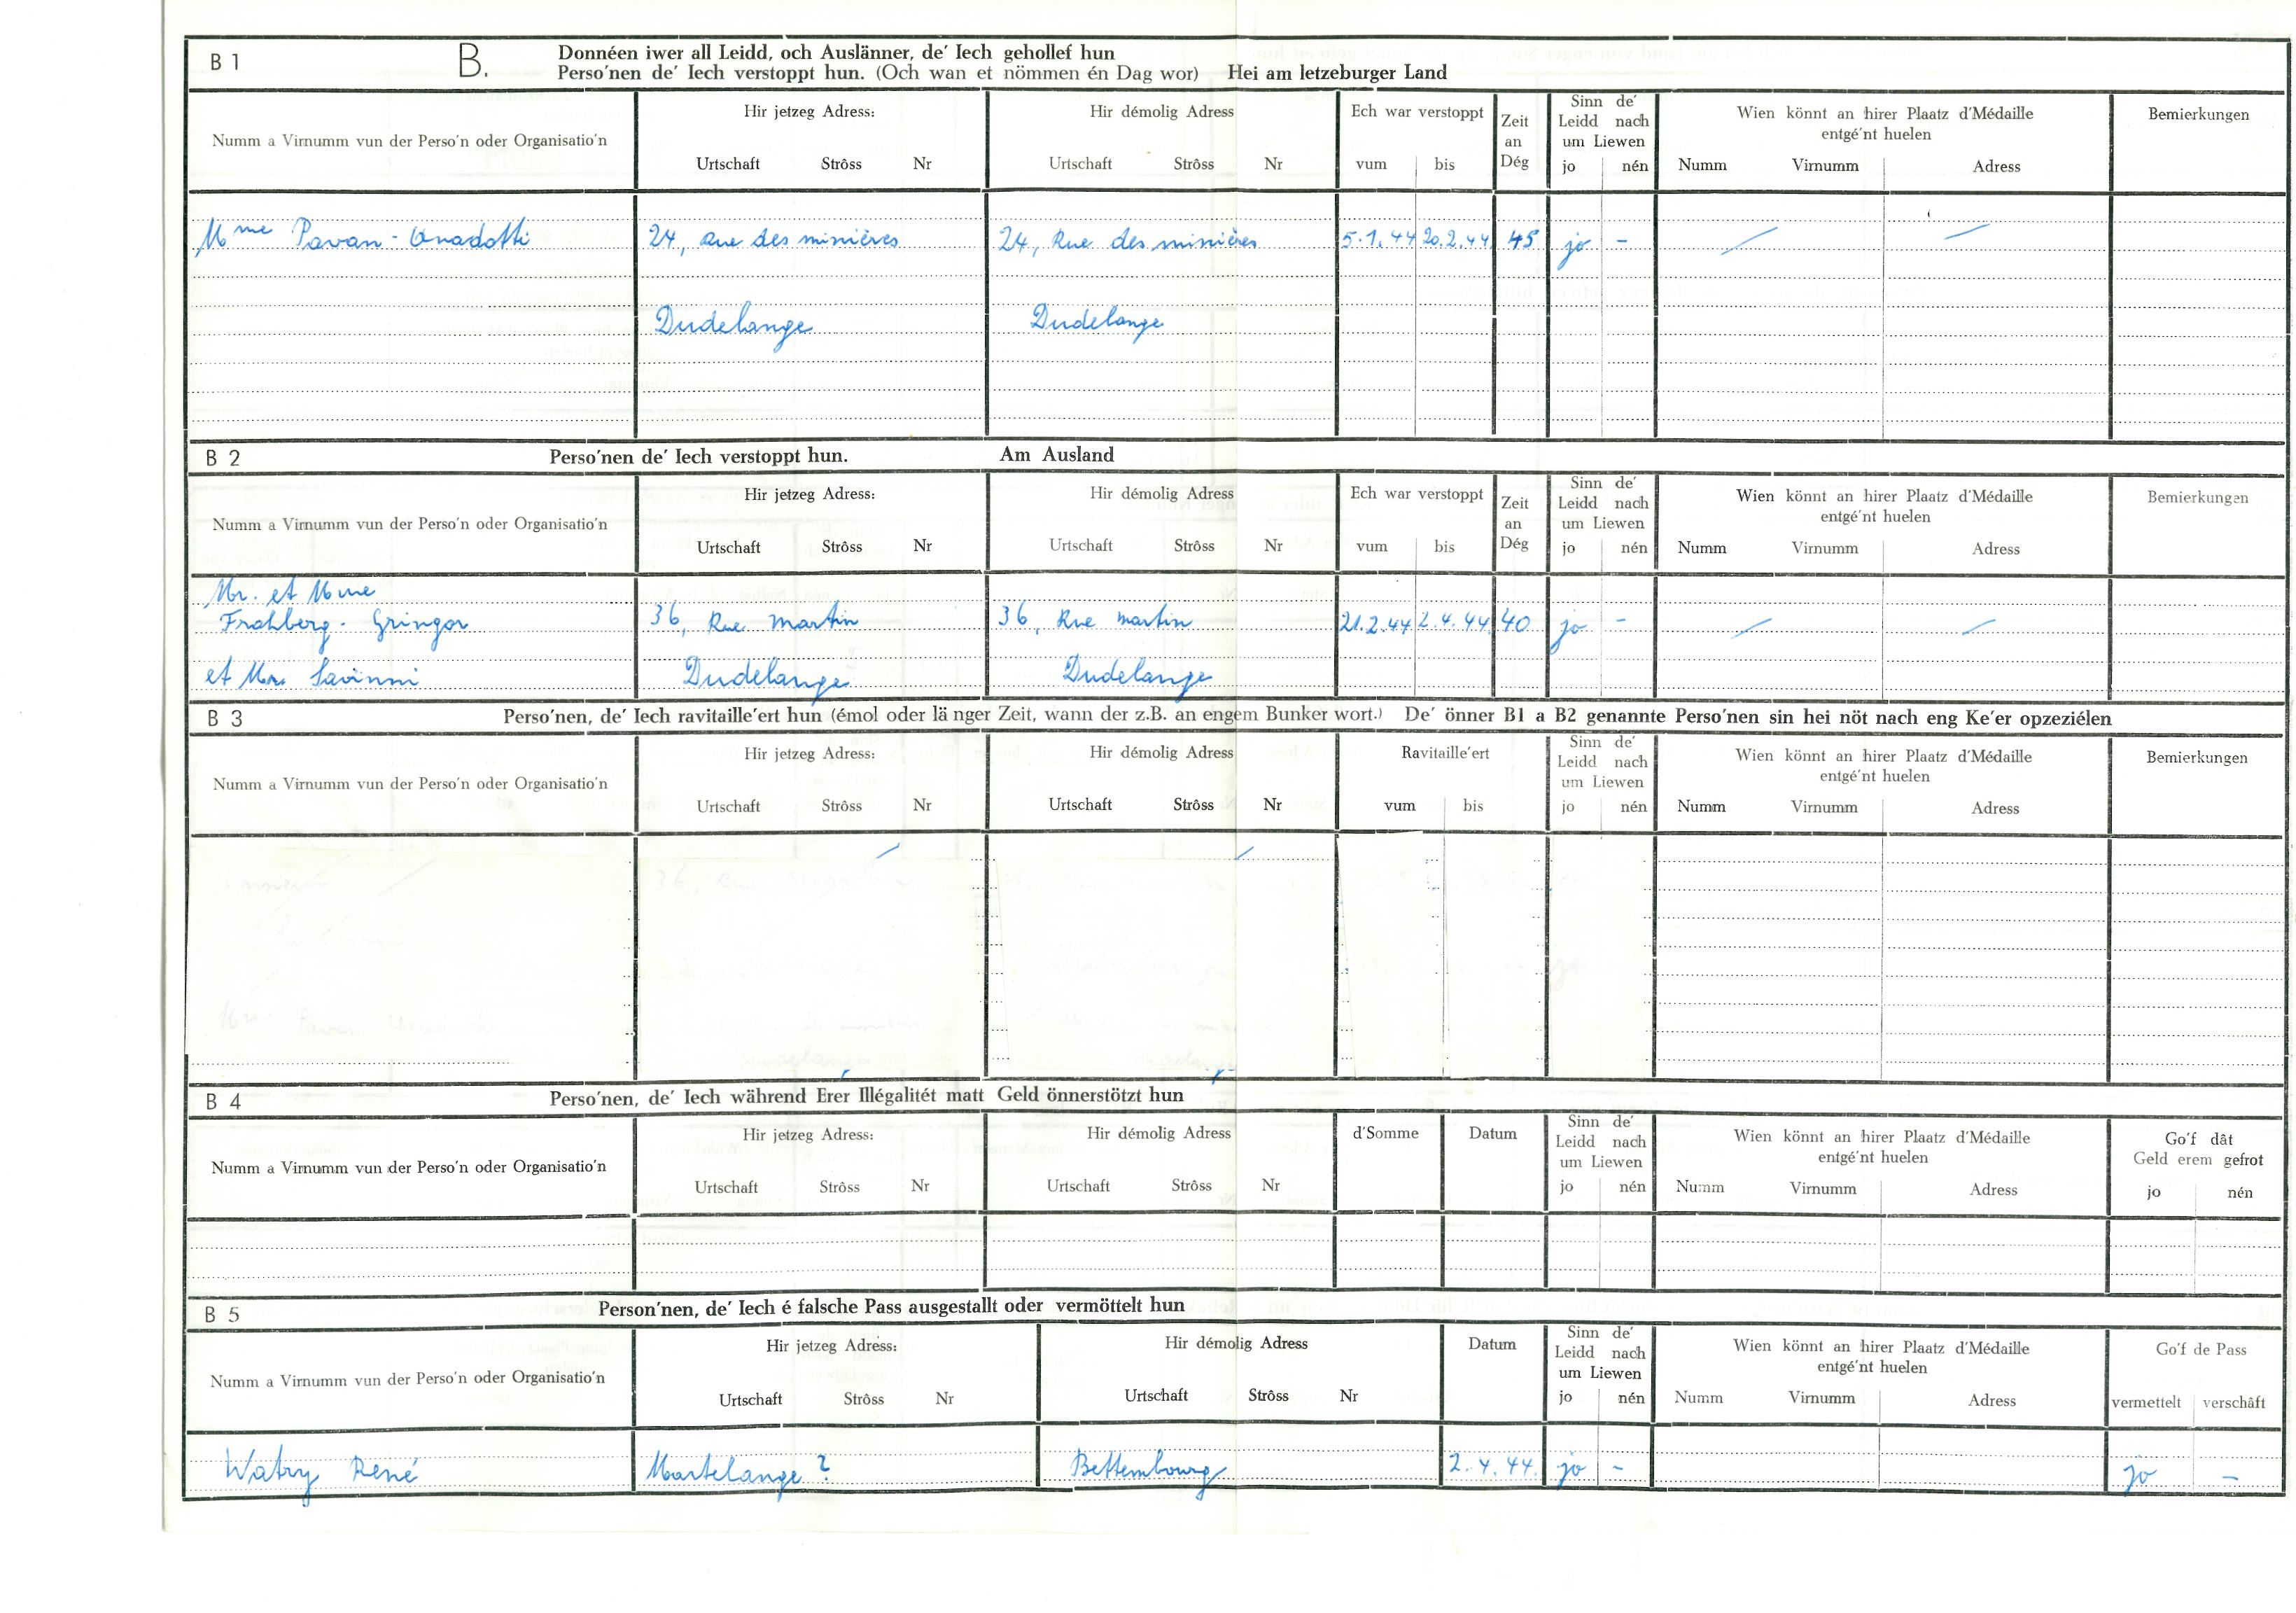 B 1
B.
Donnéen iwer all Leidd, och Auslänner, de' Iech gehollef hun
Perso'nen de' Iech verstoppt hun. (Och wan et nömmen én Dag wor) Hei am letzeburger Land
Numm a Virnumm vun der Perso'n oder Organisatio'n
Hir jetzeg Adress:
Urtschaft Strôss Nr
Hir démolig Adress
Urtschaft Strôss Nr
Ech war verstoppt
vum bis
Zeit
an
Dég
Sinn de'
Leidd nach
um Liewen
jo nén
Wien könnt an hirer Plaatz d'Médaille
entgé'nt huelen
Numm Virnumm Adress
Bemierkungen
Mme Pavan - 24, Rue des minières 24, Rue des minières 5.1.44 20.2.44 45 jo -
Dudelange Dudelange
B 2
Perso'nen de' Iech verstoppt hun. Am Ausland
Numm a Virnumm vun der Perso'n oder Organisatio'n
Hir jetzeg Adress:
Urtschaft Strôss Nr
Hir démolig Adress
Urtschaft Strôss Nr
Ech war verstoppt
vum bis
Zeit
an
Dég
Sinn de'
Leidd nach
um Liewen
jo nén
Wien könnt an hirer Plaatz d'Médaille
entgé'nt huelen
Numm Virnumm Adress
Bemierkungen
Mr. et Mme
Frahberg - Gringor 36, Rue Martin 36, Rue Martin 21.2.44 2.4.44. 40 jo -
et Mr. Dudelange Dudelange
B 3
Perso'nen, de' Iech ravitaille'ert hun (émol oder länger Zeit, wann der z.B. an engem Bunker wort.) De' önner B1 a B2 genannte Perso'nen sin hei nöt nach eng Ke'er opzeziélen
Numm a Virnumm vun der Perso'n oder Organisatio'n
Hir jetzeg Adress:
Urtschaft Strôss Nr
Hir démolig Adress
Urtschaft Strôss Nr
Ravitaille'ert
vum bis
Sinn de'
Leidd nach
um Liewen
jo nén
Wien könnt an hirer Plaatz d'Médaille
entgé'nt huelen
Numm Virnumm Adress
Bemierkungen
B 4
Perso'nen, de' Iech während Erer Illégalitét matt Geld önnerstötzt hun
Numm a Virnumm vun der Perso'n oder Organisatio'n
Hir jetzeg Adress:
Urtschaft Strôss Nr
Hir démolig Adress
Urtschaft Strôss Nr
d'Somme
Datum
Sinn de'
Leidd nach
um Liewen
jo nén
Wien könnt an hirer Plaatz d'Médaille
entgé'nt huelen
Numm Virnumm Adress
Go'f dât
Geld erem gefrot
jo nén
B 5
Person'nen, de' Iech é falsche Pass ausgestallt oder vermöttelt hun
Numm a Virnumm vun der Perso'n oder Organisatio'n
Hir jetzeg Adress:
Urtschaft Strôss Nr
Hir démolig Adress
Urtschaft Strôss Nr
Datum
Sinn de'
Leidd nach
um Liewen
jo nén
Wien könnt an hirer Plaatz d'Médaille
entgé'nt huelen
Numm Virnumm Adress
Go'f de Pass
vermettelt verschâft
Watry René Martelange ? Bettembourg 2.4.44. jo - jo -